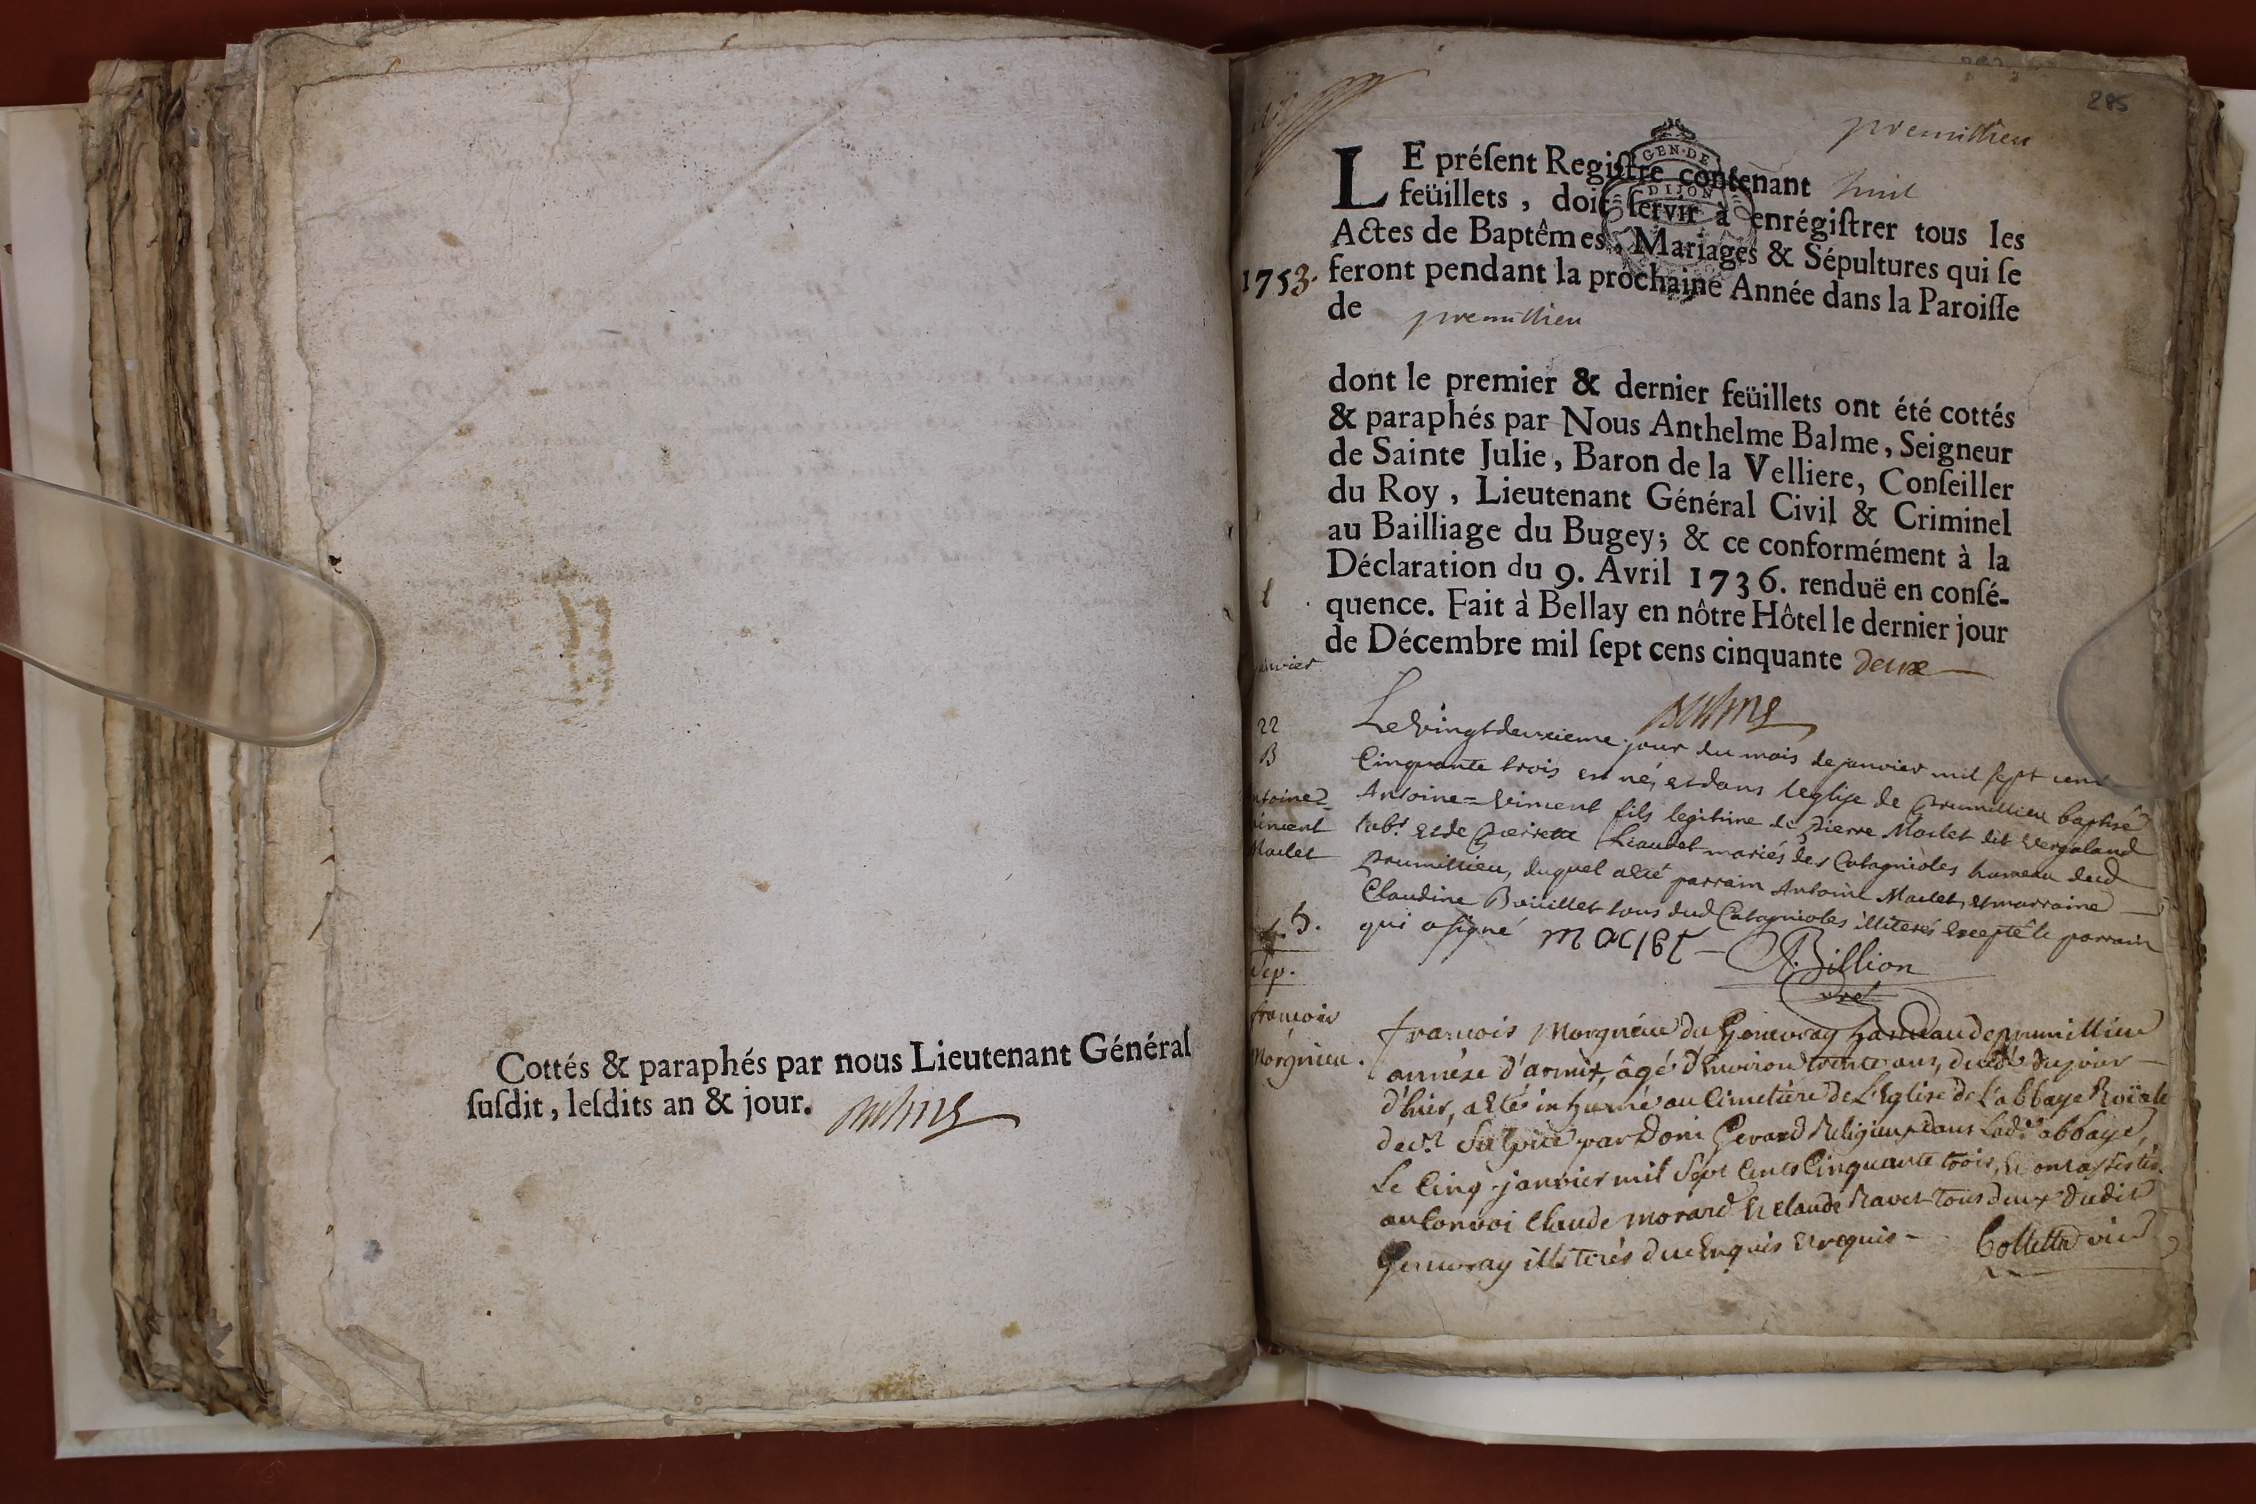 Cottés & paraphés par nous Lieutenant Général
ſuſdit, leſdits an & jour. Balme
285
premillieu
GEN·DE
DIJON
LE préſent Regiſtre contenant huit
feüillets, doit ſervir à enrégiſtrer tous les
Actes de Baptêmes, Mariages & Sépultures qui ſe
1753. feront pendant la prochaine Année dans la Paroiſſe
de premillieu
dont le premier & dernier feüillets ont été cottés
& paraphés par Nous Anthelme Balme, Seigneur
de Sainte Julie, Baron de la Velliere, Conſeiller
du Roy, Lieutenant Général Civil & Criminel
au Bailliage du Bugey; & ce conformément à la
Déclaration du 9. Avril 1736. renduë en conſé-
quence. Fait à Bellay en nôtre Hôtel le dernier jour
de Décembre mil ſept cens cinquante deux
Balme
janvier
22
B
antoine=
vincent
Maclet
Le vingt deuxieme jour du mois de janvier mil sept cent
Cinquante trois est né, et dans leglise de Prumillieu baptisé
Antoine=vincent fils legitime de pierre Maclet dit vergaland
lab.r et de Pierrette Liaudet mariés des Catagnioles hameau dud
Prumillieu, duquel a été parrain Antoine Maclet, et marraine
Claudine Bouillet tous dud Catagnioles illiterés excepté le parrain
qui a signé maclet Billion
curé
5.
Sep.
francois
Morgnieu.
francois Morgnieu du Genevray hameau de prumillieu
annéxe d'armix, âgé d'Environ trente ans, decédé du jour
d'hier, a été inhumé au Cimetière de L'Eglise de L'abbaye Roïale
de s.t Sulpice par Dom Gerard Religieux dans lad.e abbaye,
Le Cinq janvier mil Sept Cents Cinquante trois, et ont assistés
au Convoi Claude morard et claude Ravet tous deux dudit
Genevray illiterés de ce Enquis et requis - Collettad vic.